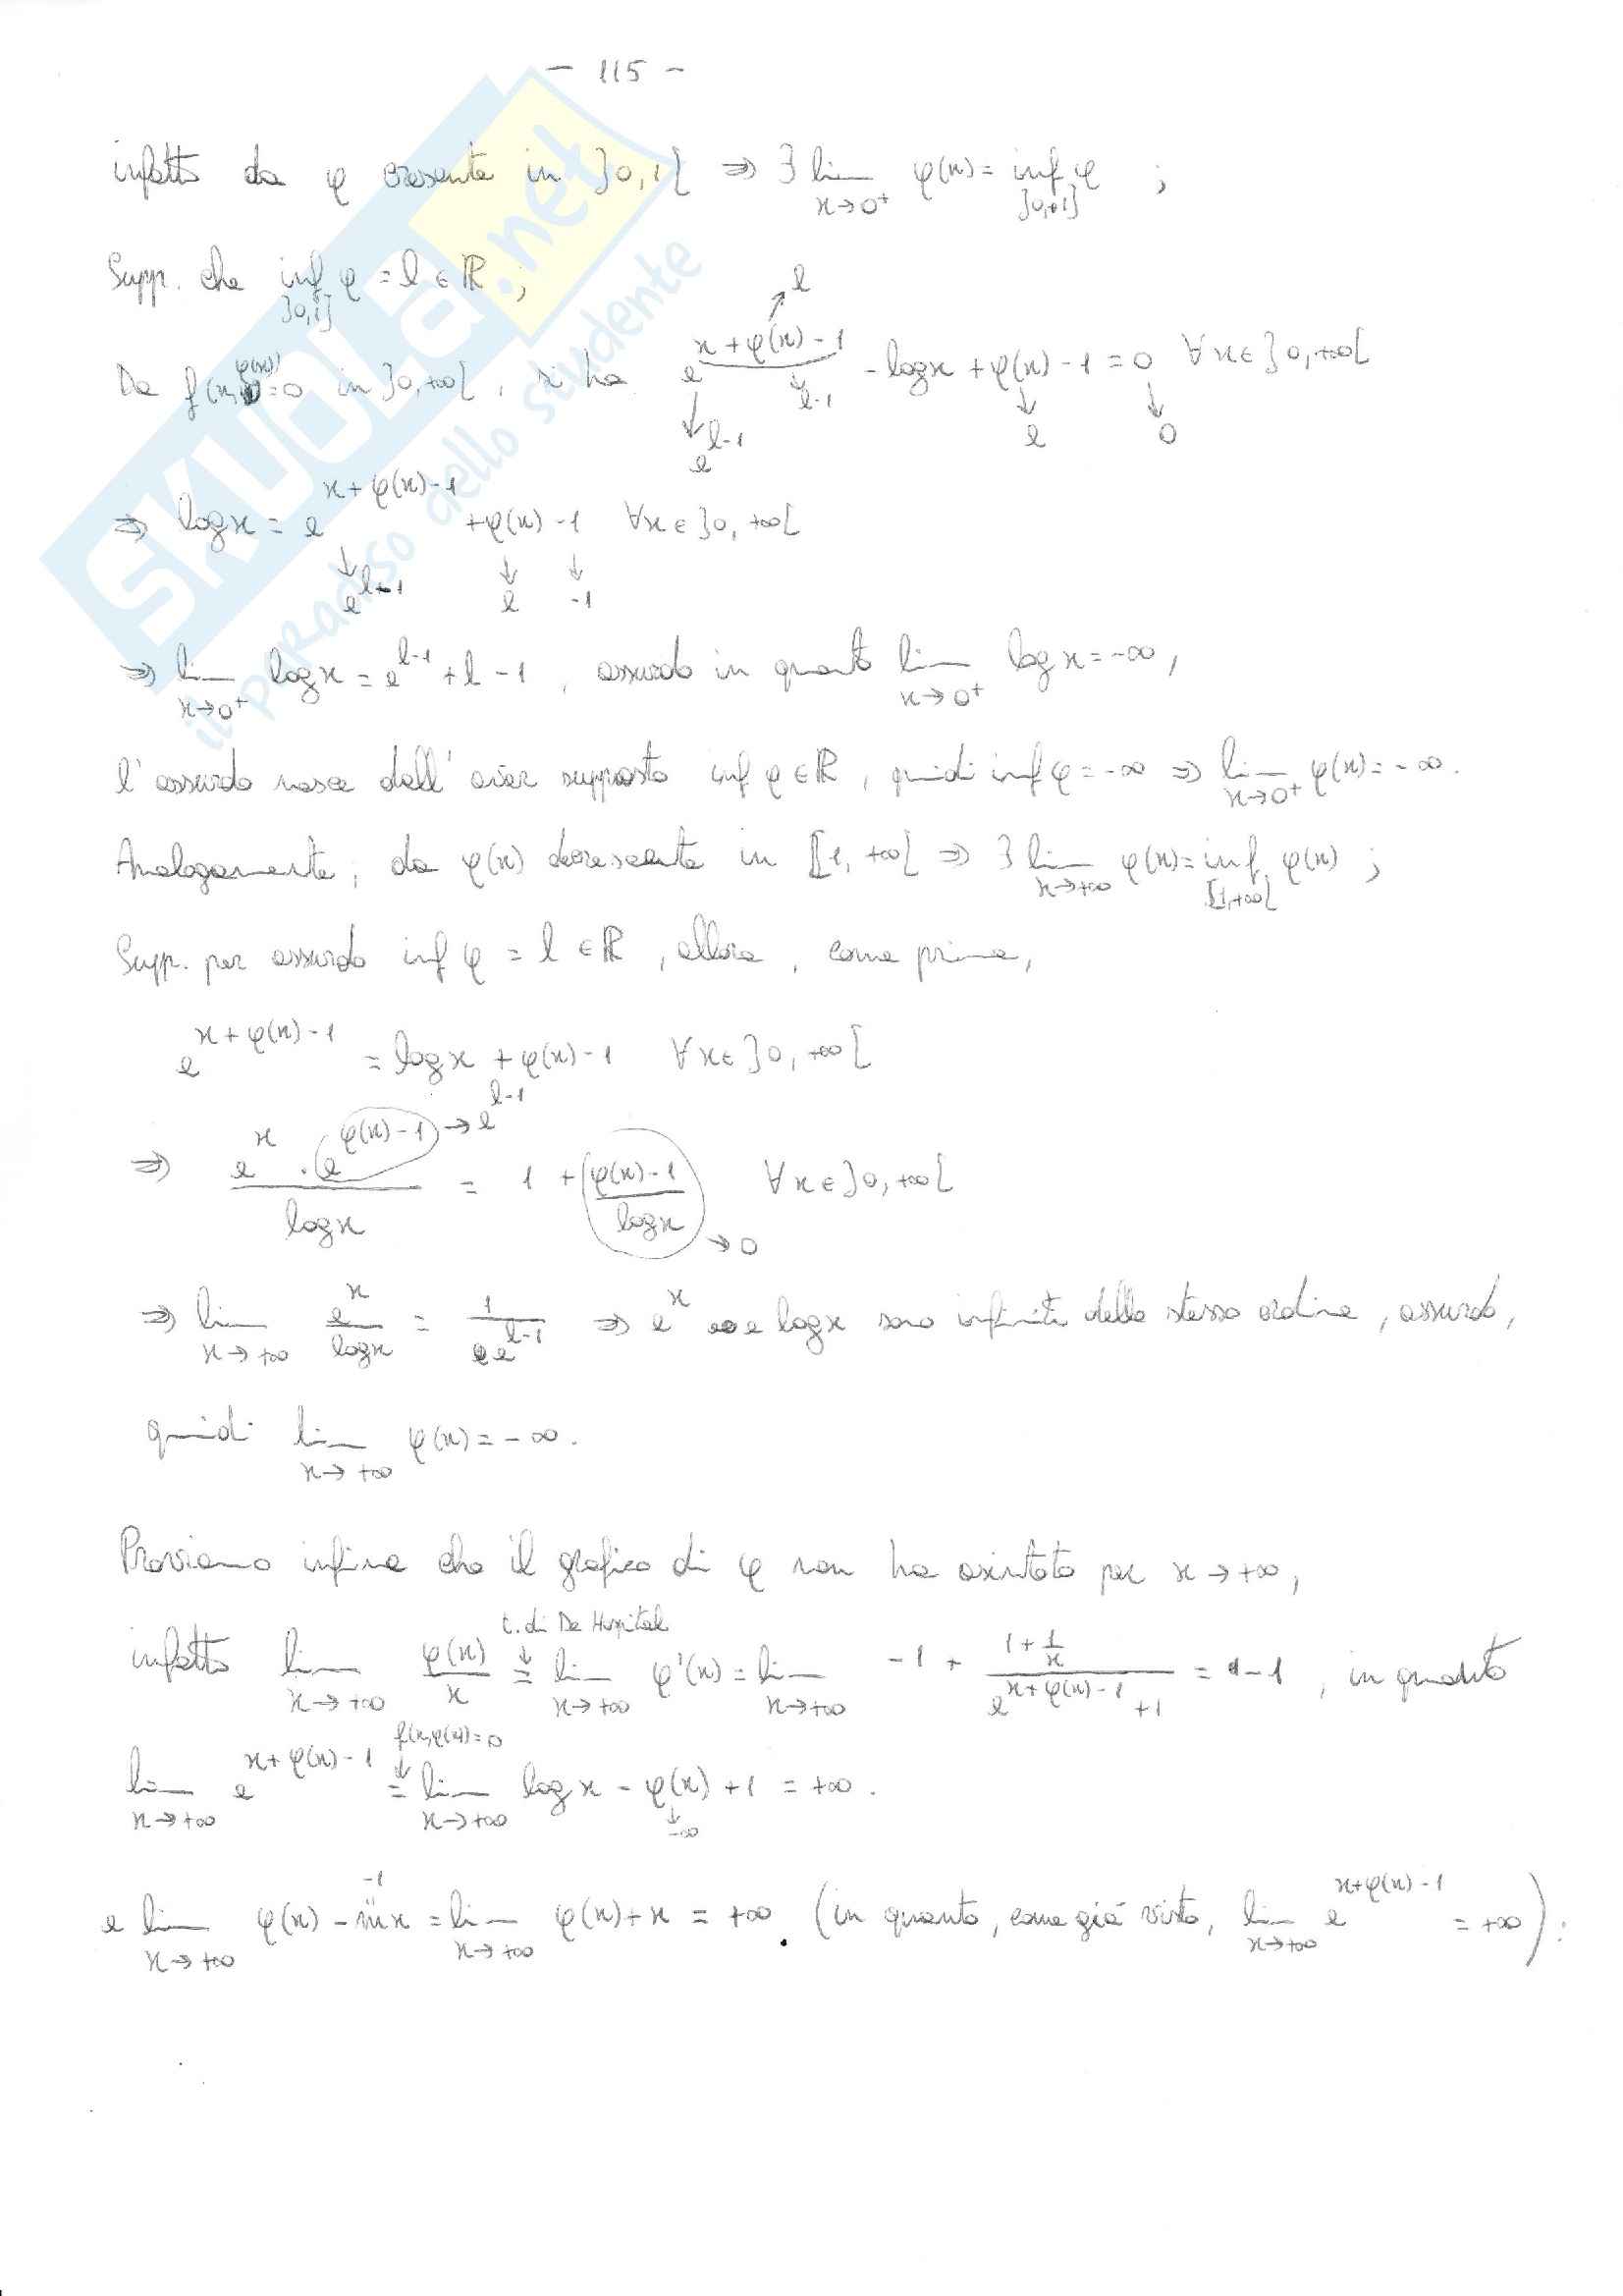 - 115 -
infatti da φ crescente in ]0,1[ ⇒ ∃ lim_{x→0⁺} φ(x) = inf_{]0,1]} φ ;
Supp. che inf_{]0,1]} φ = l ∈ ℝ ;
Da f(x,φ(x))=0 in ]0,+∞[ , si ha e^{x+φ(x)-1} - log x + φ(x) - 1 = 0 ∀x∈]0,+∞[
↗ l
↓ l-1
↓ e^{l-1} ↓ l ↓ 0
⇒ log x = e^{x+φ(x)-1} + φ(x) - 1 ∀x∈]0,+∞[
↓ e^{l-1} ↓ l ↓ -1
⇒ lim_{x→0⁺} log x = e^{l-1} + l - 1 , assurdo in quanto lim_{x→0⁺} log x = -∞ ,
l'assurdo nasce dall'aver supposto inf φ ∈ ℝ , quindi inf φ = -∞ ⇒ lim_{x→0⁺} φ(x) = -∞ .
Analogamente, da φ(x) decrescente in [1,+∞[ ⇒ ∃ lim_{x→+∞} φ(x) = inf_{[1,+∞[} φ(x) ;
Supp. per assurdo inf φ = l ∈ ℝ , allora , come prima ,
e^{x+φ(x)-1} = log x + φ(x) - 1 ∀x∈]0,+∞[
⇒ (e^x · e^{φ(x)-1} → e^{l-1}) / log x = 1 + (φ(x)-1)/log x → 0 ∀x∈]0,+∞[
⇒ lim_{x→+∞} e^x / log x = 1 / e^{l-1} ⇒ e^x e log x sono infiniti dello stesso ordine , assurdo ,
quindi lim_{x→+∞} φ(x) = -∞ .
Proviamo infine che il grafico di φ non ha asintoto per x→+∞ ,
t. di De Hospital
infatti lim_{x→+∞} φ(x)/x = lim_{x→+∞} φ'(x) = lim_{x→+∞} -1 + (1 + 1/x)/(e^{x+φ(x)-1} + 1) = -1 , in quanto
f(x,φ(x))=0
lim_{x→+∞} e^{x+φ(x)-1} = lim_{x→+∞} log x - φ(x) + 1 = +∞ .
↓ -∞
-1
e lim_{x→+∞} φ(x) - mx = lim_{x→+∞} φ(x) + x = +∞ . (in quanto, come già visto, lim_{x→+∞} e^{x+φ(x)-1} = +∞) :
SKUOLA.net
il paradiso dello studente